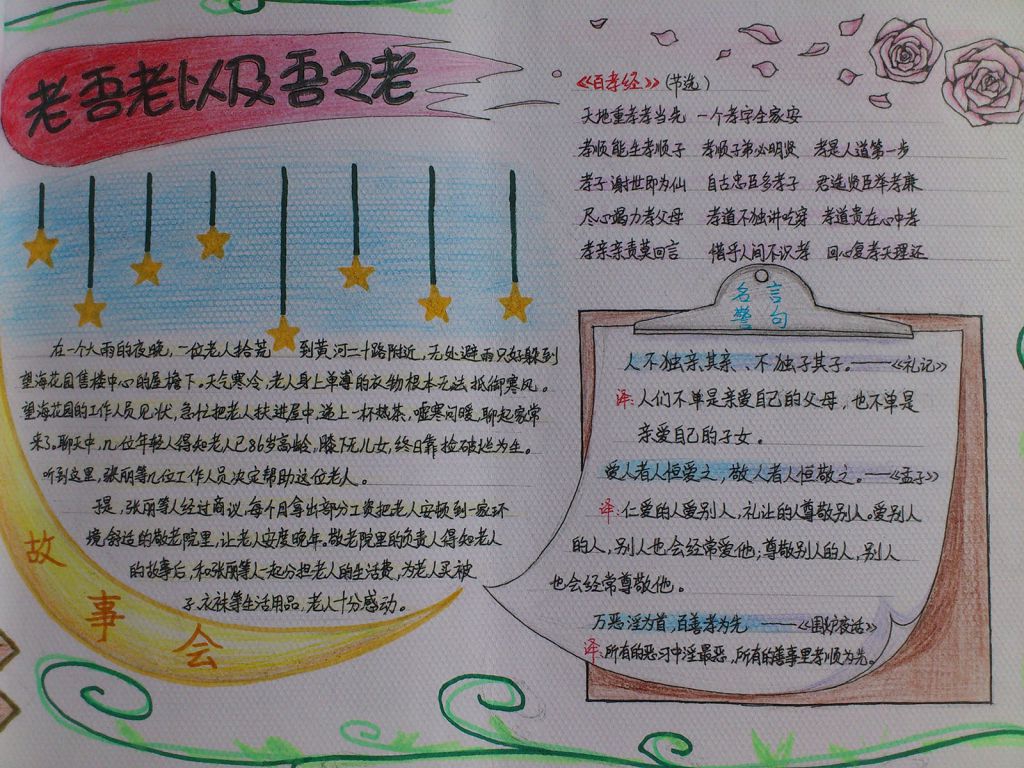 老吾老以及吾之老
在一个大雨的夜晚,一位老人拾荒 到黄河二十路附近,无处避雨只好躲到
望海花园售楼中心的屋檐下。天气寒冷,老人身上单薄的衣物根本无法抵御寒风。
望海花园的工作人员见状,急忙把老人扶进屋中,递上一杯热茶,嘘寒问暖,聊起家常
来了。聊天中,几位年轻人得知老人已86岁高龄,膝下无儿女,终日靠捡破烂为生。
听到这里,张丽等几位工作人员决定帮助这位老人。
于是,张丽等人经过商议,每个月拿出部分工资把老人安顿到一家环
境舒适的敬老院里,让老人安度晚年。敬老院里的负责人得知老人
的故事后,和张丽等人一起分担老人的生活费,为老人买被
子、衣袜等生活用品,老人十分感动。
故事会
《百孝经》(节选)
天地重孝孝当先 一个孝字全家安
孝顺能生孝顺子 孝顺子弟必明贤 孝是人道第一步
孝子谢世即为仙 自古忠臣多孝子 君选贤臣举孝廉
尽心竭力孝父母 孝道不独讲吃穿 孝道贵在心中孝
孝亲亲责莫回言 惜乎人间不识孝 回心复孝天理还
名言
警句
人不独亲其亲、不独子其子。——《礼记》
译:人们不单是亲爱自己的父母,也不单是
亲爱自己的子女。
爱人者人恒爱之,敬人者人恒敬之。——《孟子》
译:仁爱的人爱别人,礼让的人尊敬别人。爱别人
的人,别人也会经常爱他;尊敬别人的人,别人
也会经常尊敬他。
万恶淫为首,百善孝为先 ——《围炉夜话》
译:所有的恶习中淫最恶,所有的善事里孝顺为先。